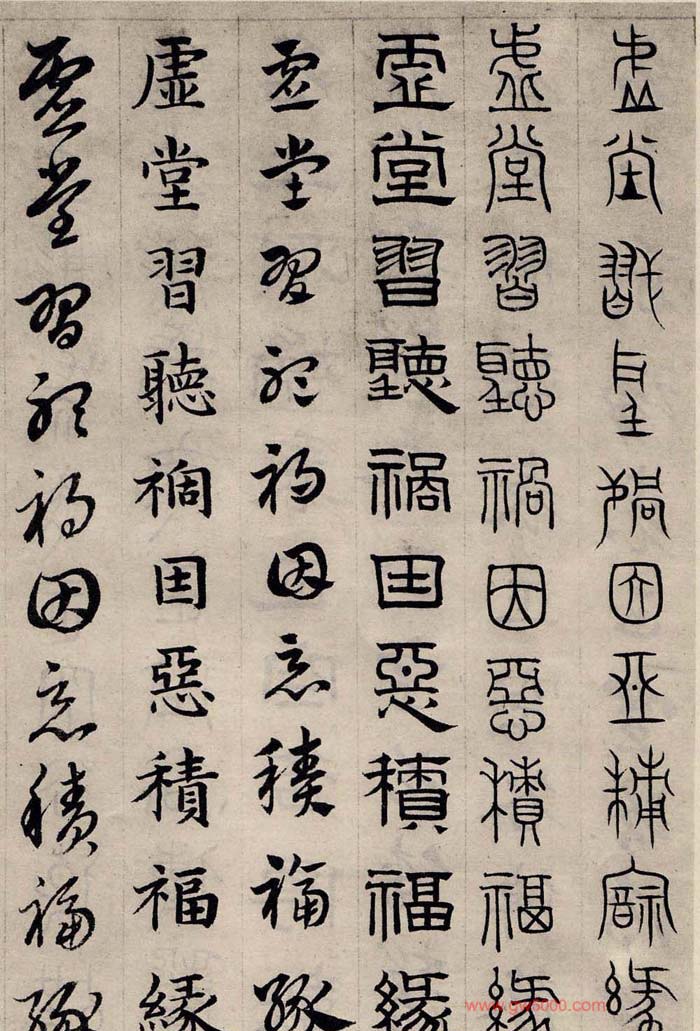 虚堂習聽禍因惡積福緣
虚堂習聽禍因惡積福緣
虚堂習聽禍因惡積福緣
虚堂習聽禍因惡積福緣
虚堂習聽禍因惡積福緣
虚堂習聽禍因惡積福緣
www.gw5000.com